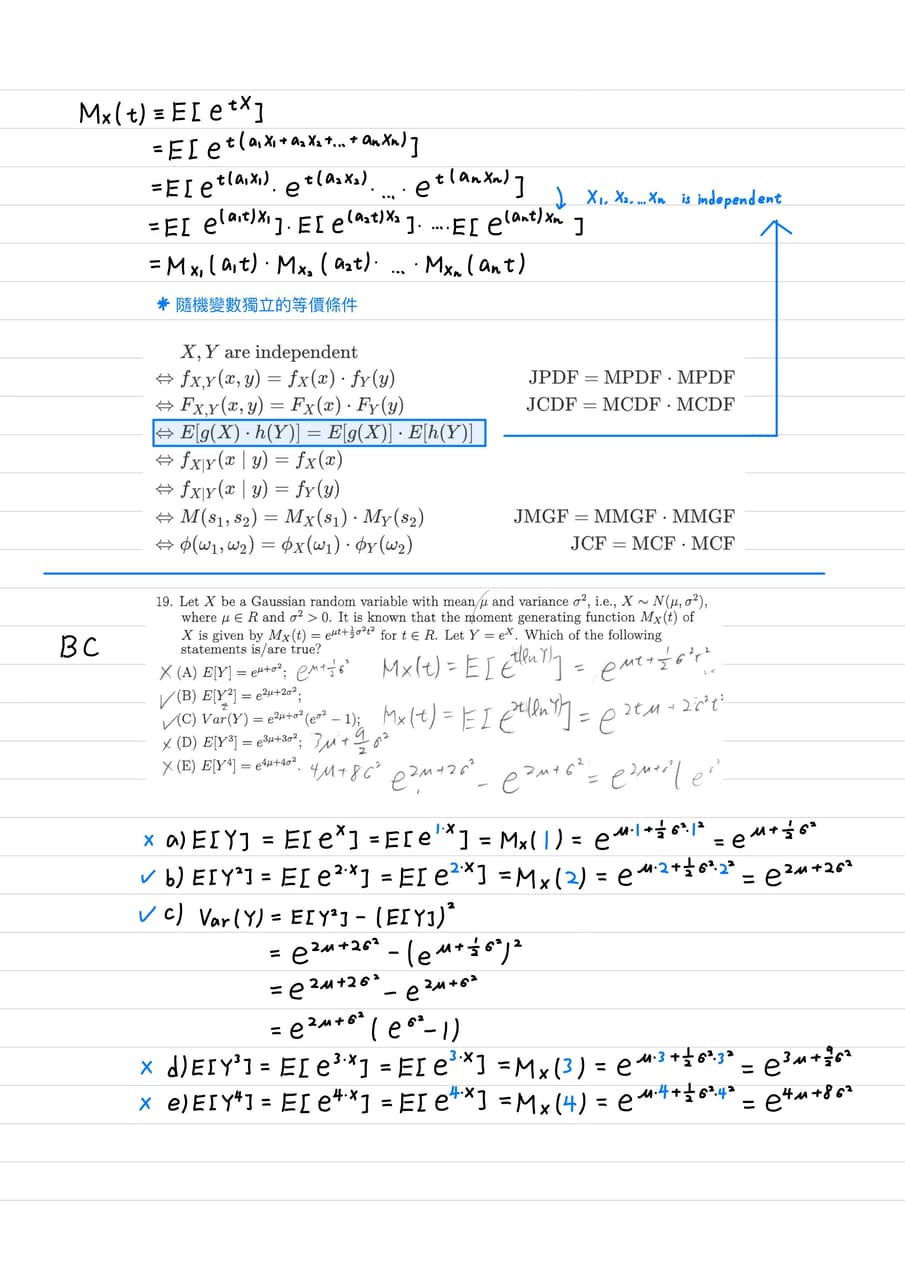 Mx(t) ≡ E[ e^{tX} ]
= E[ e^{t(a₁X₁+a₂X₂+...+aₙXₙ)} ]
= E[ e^{t(a₁X₁)} · e^{t(a₂X₂)} · ... · e^{t(aₙXₙ)} ]
↓ X₁, X₂, ... Xₙ is independent
= E[ e^{(a₁t)X₁} ] · E[ e^{(a₂t)X₂} ] · ... · E[ e^{(aₙt)Xₙ} ]
= M_{X₁}(a₁t) · M_{X₂}(a₂t) · ... · M_{Xₙ}(aₙt)
* 隨機變數獨立的等價條件
X, Y are independent
⇔ f_{X,Y}(x, y) = f_X(x) · f_Y(y) JPDF = MPDF · MPDF
⇔ F_{X,Y}(x, y) = F_X(x) · F_Y(y) JCDF = MCDF · MCDF
⇔ E[g(X) · h(Y)] = E[g(X)] · E[h(Y)]
⇔ f_{X|Y}(x | y) = f_X(x)
⇔ f_{X|Y}(x | y) = f_Y(y)
⇔ M(s₁, s₂) = M_X(s₁) · M_Y(s₂) JMGF = MMGF · MMGF
⇔ ϕ(ω₁, ω₂) = ϕ_X(ω₁) · ϕ_Y(ω₂) JCF = MCF · MCF
19. Let X be a Gaussian random variable with mean μ and variance σ², i.e., X ∼ N(μ, σ²),
where μ ∈ R and σ² > 0. It is known that the moment generating function M_X(t) of
X is given by M_X(t) = e^{μt+½σ²t²} for t ∈ R. Let Y = e^X. Which of the following
statements is/are true?
BC
✗ (A) E[Y] = e^{μ+σ²}; e^{μ+½σ²} Mx(t) = E[ e^{t(lnY)} ] = e^{μt+½σ²t²}
✓ (B) E[Y²] = e^{2μ+2σ²};
✓ (C) Var(Y) = e^{2μ+σ²}(e^{σ²} − 1); Mx(t) = E[ e^{2t(lnY)} ] = e^{2tμ+2σ²t²}
✗ (D) E[Y³] = e^{3μ+3σ²}; 3μ+9/2 σ²
✗ (E) E[Y⁴] = e^{4μ+4σ²}. 4μ+8σ² e^{2μ+2σ²} − e^{2μ+σ²} = e^{2μ+σ²}( e
× a) E[Y] = E[e^X] = E[e^{1·X}] = Mx(1) = e^{μ·1+½σ²·1²} = e^{μ+½σ²}
✓ b) E[Y²] = E[e^{2·X}] = E[e^{2·X}] = Mx(2) = e^{μ·2+½σ²·2²} = e^{2μ+2σ²}
✓ c) Var(Y) = E[Y²] − (E[Y])²
= e^{2μ+2σ²} − (e^{μ+½σ²})²
= e^{2μ+2σ²} − e^{2μ+σ²}
= e^{2μ+σ²} ( e^{σ²} − 1)
× d) E[Y³] = E[e^{3·X}] = E[e^{3·X}] = Mx(3) = e^{μ·3+½σ²·3²} = e^{3μ+9/2σ²}
× e) E[Y⁴] = E[e^{4·X}] = E[e^{4·X}] = Mx(4) = e^{μ·4+½σ²·4²} = e^{4μ+8σ²}